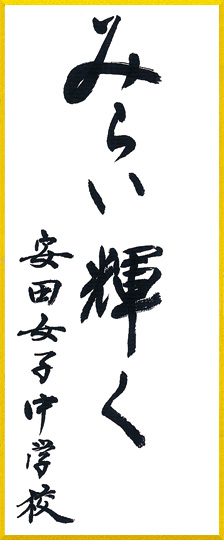 みらい輝く
安田女子中学校